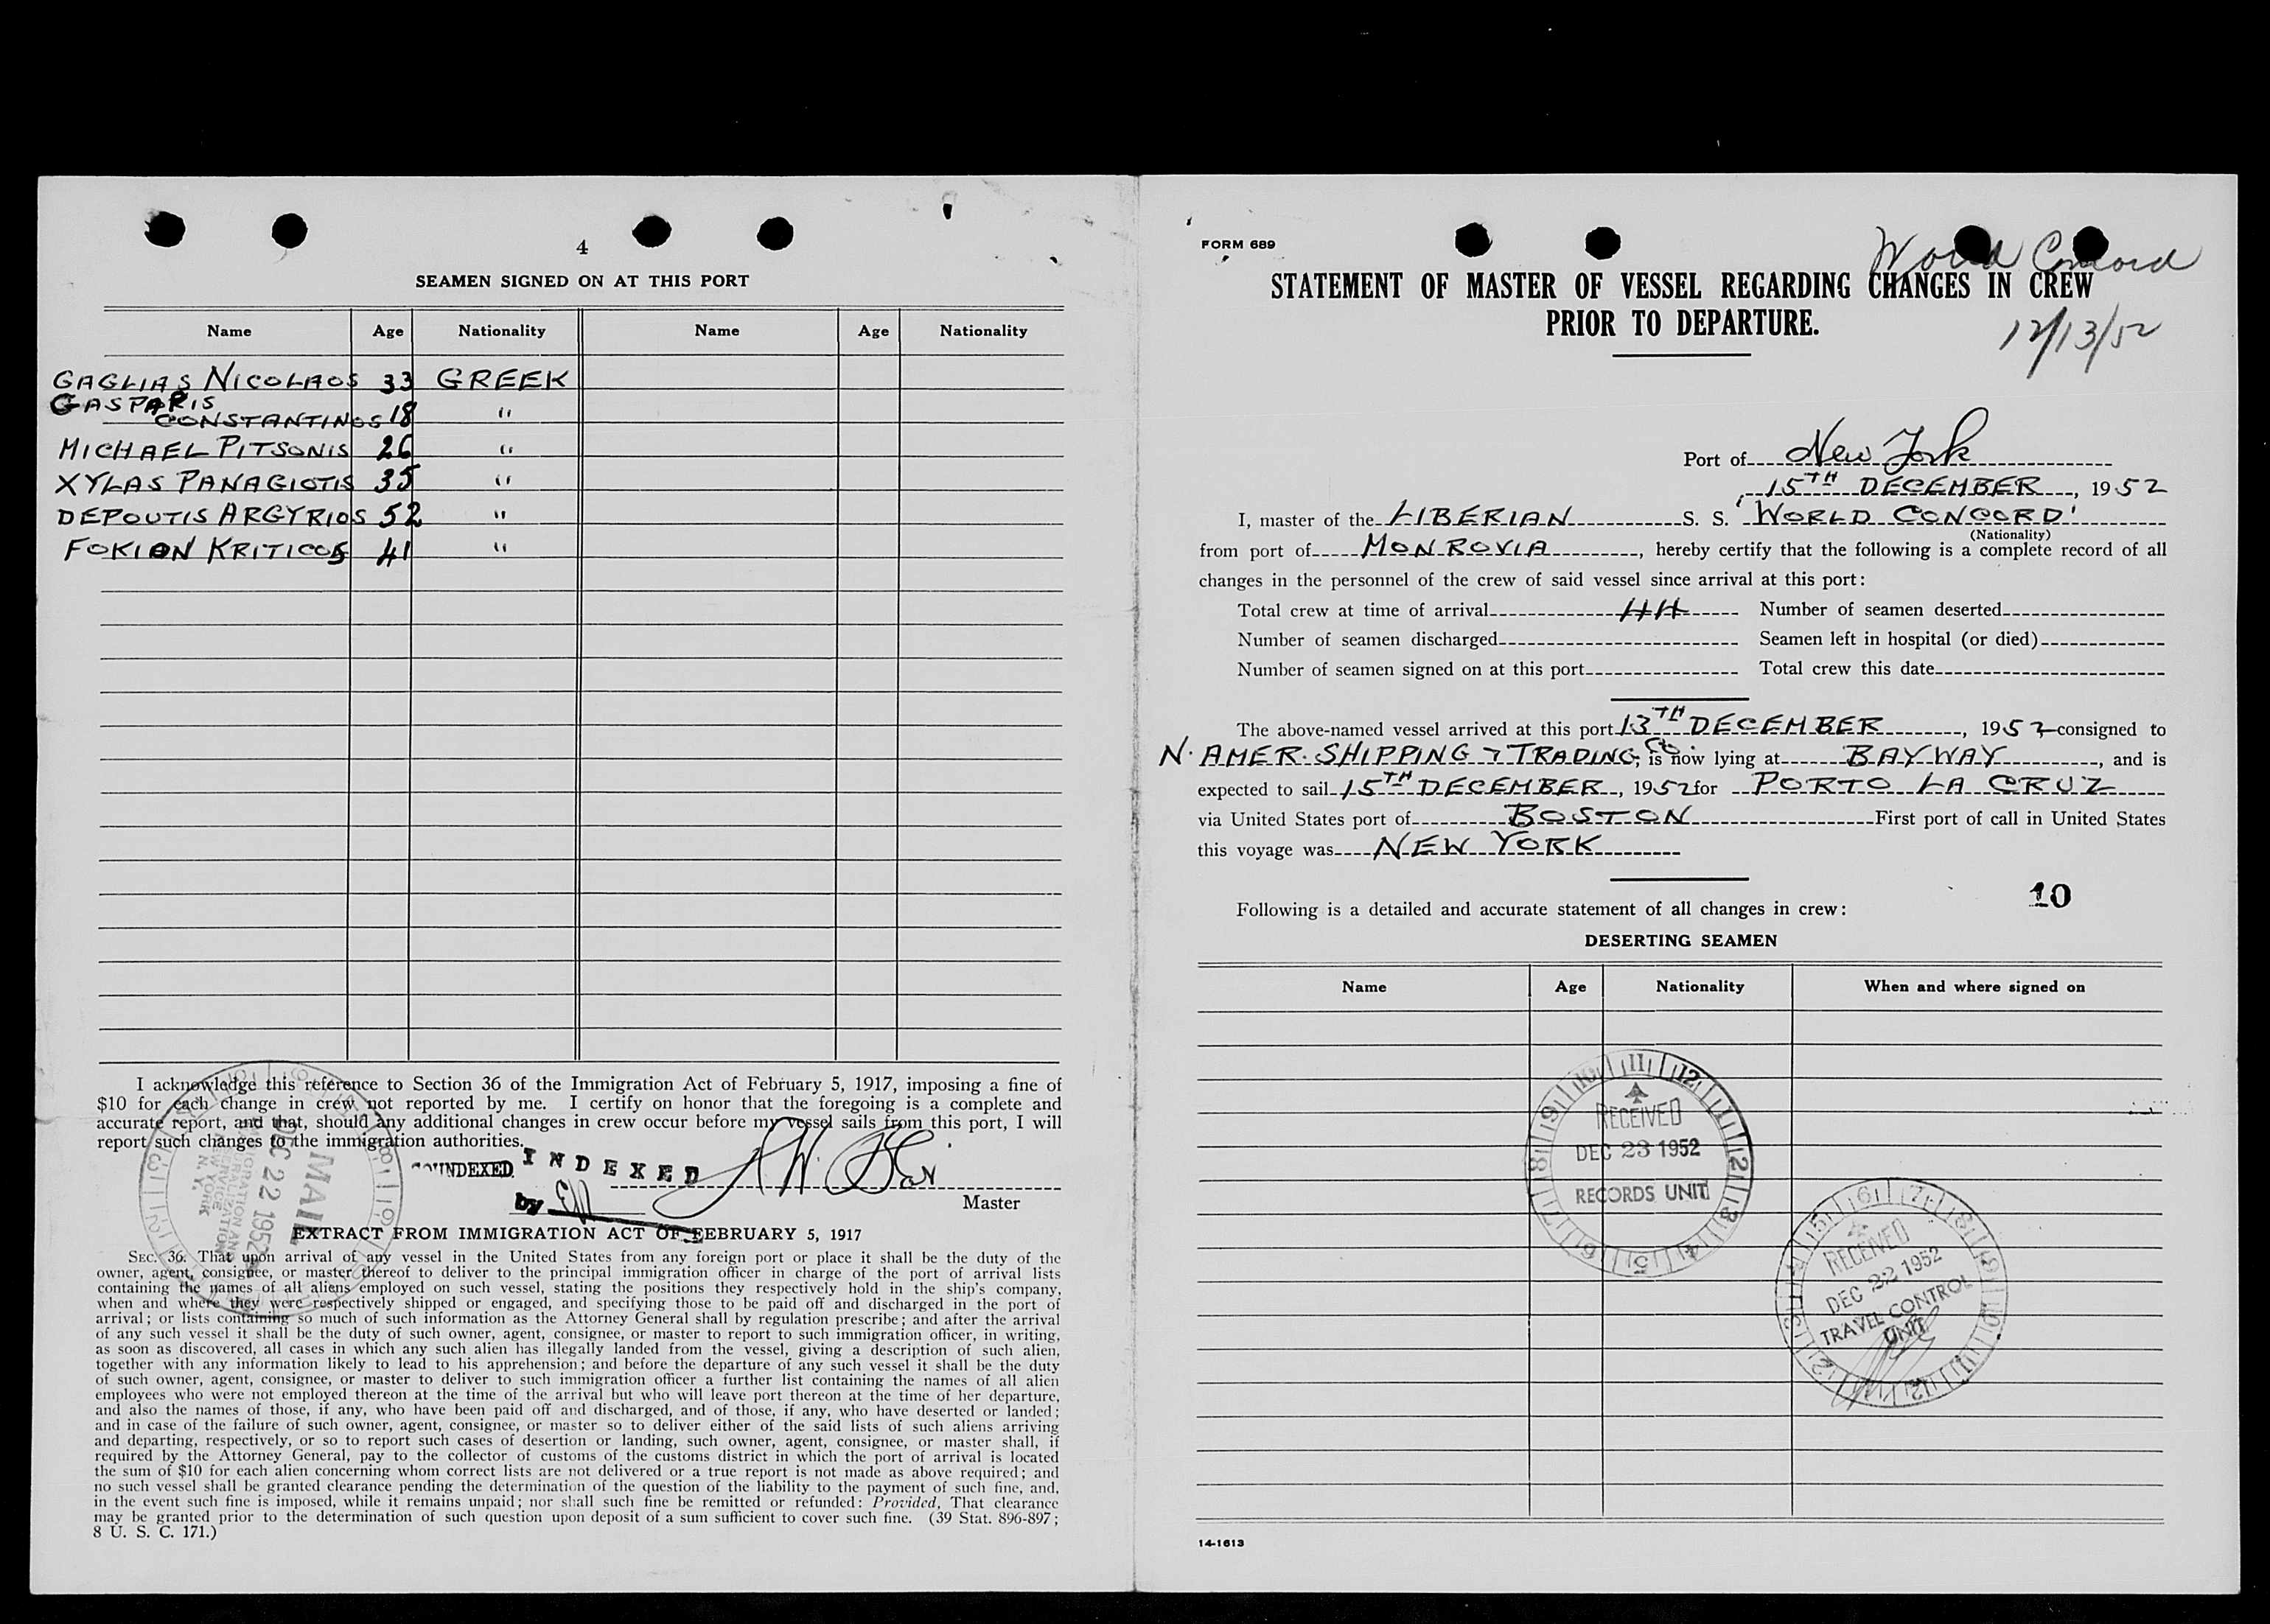 4
SEAMEN SIGNED ON AT THIS PORT
Name Age Nationality Name Age Nationality
GAGLIAS NICOLAOS 33 GREEK
GASPARIS
CONSTANTINOS 18 "
MICHAEL PITSONIS 26 "
XYLAS PANAGIOTIS 35 "
DEPOUTIS ARGYRIOS 52 "
FOKION KRITICOS 41 "
I acknowledge this reference to Section 36 of the Immigration Act of February 5, 1917, imposing a fine of
$10 for each change in crew not reported by me. I certify on honor that the foregoing is a complete and
accurate report, and that, should any additional changes in crew occur before my vessel sails from this port, I will
report such changes to the immigration authorities.
INDEXED INDEXED
by
Master
MAIL
DEC 22 1952
IMMIGRATION AND
NATURALIZATION
SERVICE
NEW YORK
N. Y.
EXTRACT FROM IMMIGRATION ACT OF FEBRUARY 5, 1917
SEC. 36. That upon arrival of any vessel in the United States from any foreign port or place it shall be the duty of the
owner, agent, consignee, or master thereof to deliver to the principal immigration officer in charge of the port of arrival lists
containing the names of all aliens employed on such vessel, stating the positions they respectively hold in the ship's company,
when and where they were respectively shipped or engaged, and specifying those to be paid off and discharged in the port of
arrival; or lists containing so much of such information as the Attorney General shall by regulation prescribe; and after the arrival
of any such vessel it shall be the duty of such owner, agent, consignee, or master to report to such immigration officer, in writing,
as soon as discovered, all cases in which any such alien has illegally landed from the vessel, giving a description of such alien,
together with any information likely to lead to his apprehension; and before the departure of any such vessel it shall be the duty
of such owner, agent, consignee, or master to deliver to such immigration officer a further list containing the names of all alien
employees who were not employed thereon at the time of the arrival but who will leave port thereon at the time of her departure,
and also the names of those, if any, who have been paid off and discharged, and of those, if any, who have deserted or landed;
and in case of the failure of such owner, agent, consignee, or master so to deliver either of the said lists of such aliens arriving
and departing, respectively, or so to report such cases of desertion or landing, such owner, agent, consignee, or master shall, if
required by the Attorney General, pay to the collector of customs of the customs district in which the port of arrival is located
the sum of $10 for each alien concerning whom correct lists are not delivered or a true report is not made as above required; and
no such vessel shall be granted clearance pending the determination of the question of the liability to the payment of such fine, and,
in the event such fine is imposed, while it remains unpaid; nor shall such fine be remitted or refunded: Provided, That clearance
may be granted prior to the determination of such question upon deposit of a sum sufficient to cover such fine. (39 Stat. 896-897;
8 U. S. C. 171.)
FORM 689
World Concord
STATEMENT OF MASTER OF VESSEL REGARDING CHANGES IN CREW
PRIOR TO DEPARTURE.
12/13/52
Port of New York
15TH DECEMBER, 1952
I, master of the LIBERIAN S. S. 'WORLD CONCORD'
(Nationality)
from port of MONROVIA, hereby certify that the following is a complete record of all
changes in the personnel of the crew of said vessel since arrival at this port:
Total crew at time of arrival 44 Number of seamen deserted
Number of seamen discharged Seamen left in hospital (or died)
Number of seamen signed on at this port Total crew this date
The above-named vessel arrived at this port 13TH DECEMBER, 1952 consigned to
N. AMER. SHIPPING & TRADING Co., is now lying at BAYWAY, and is
expected to sail 15TH DECEMBER, 1952 for PORTO LA CRUZ
via United States port of BOSTON First port of call in United States
this voyage was NEW YORK
10
Following is a detailed and accurate statement of all changes in crew:
DESERTING SEAMEN
Name Age Nationality When and where signed on
RECEIVED
DEC 23 1952
RECORDS UNIT
RECEIVED
DEC 22 1952
TRAVEL CONTROL
UNIT
14-1613